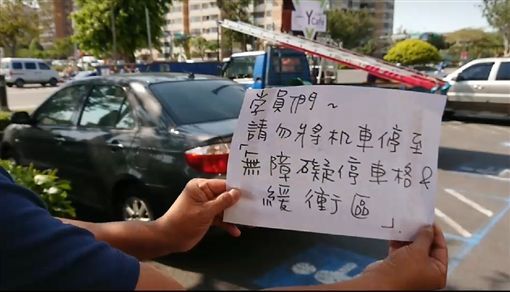 Y Café
學員們~
請勿將机車停至
「無障礙停車格&
緩衝區」.